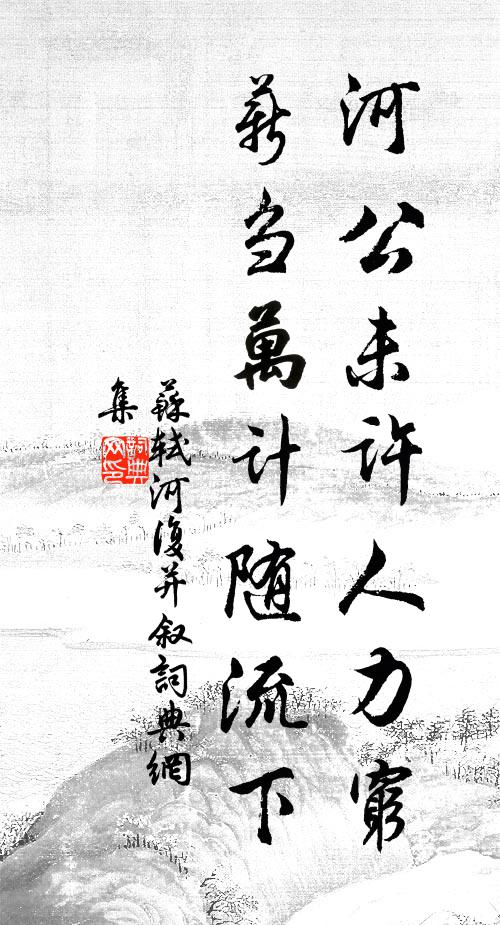 河公未許人力窮
薪刍萬計隨流下
蘇軾河復并叙詞典網
集